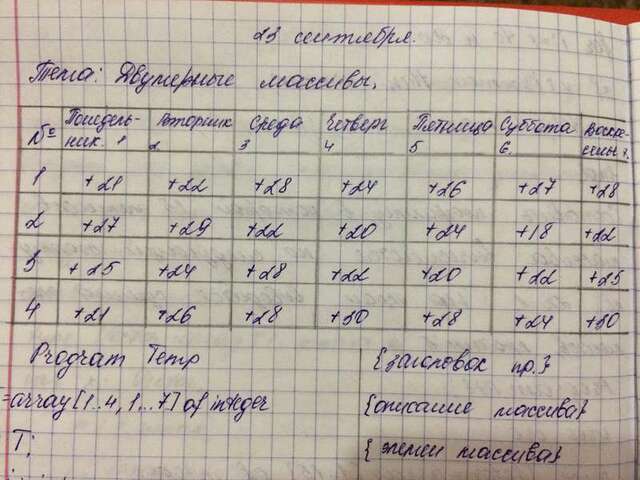 23 сентября.
Тема: Двумерные массивы.
№ Понедель- вторник Среда Четверг Пятница Суббота
ник 1 2 3 4 5 6
1 +21 +22 +28 +24 +26 +27 +28
2 +27 +29 +22 +20 +24 +18 +22
3 +25 +24 +28 +22 +20 +22 +25
4 +21 +26 +28 +20 +28 +24 +20
Program Temp {заголовок пр.}
=array [1..4, 1...7] of integer {описание массива}
T: {элемен массива}